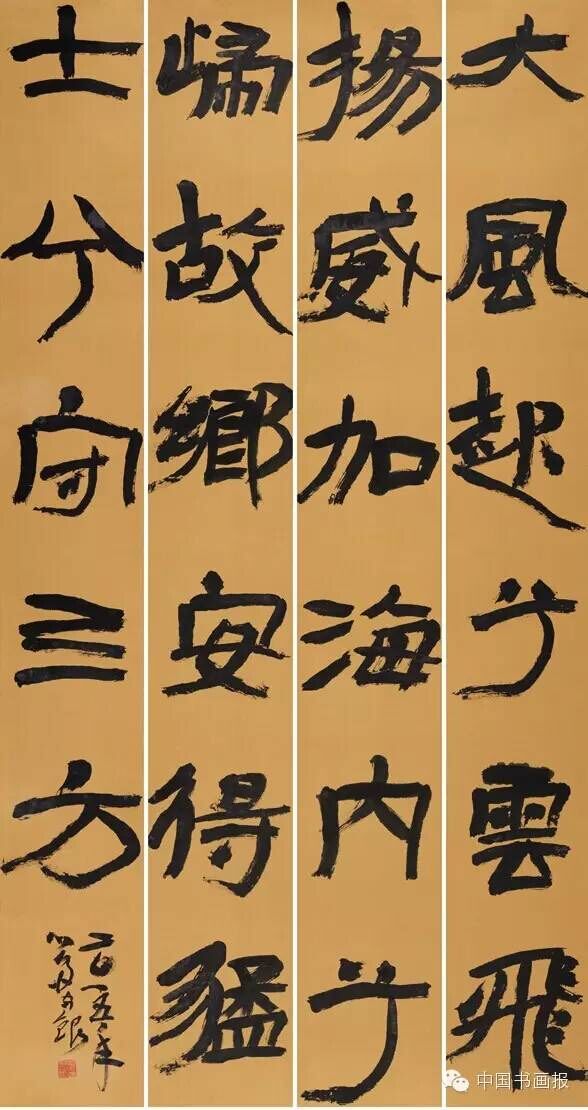 大風起兮雲飛
揚威加海内兮
歸故鄉安得猛
士兮守亖方
二〇一五年
中国书画报